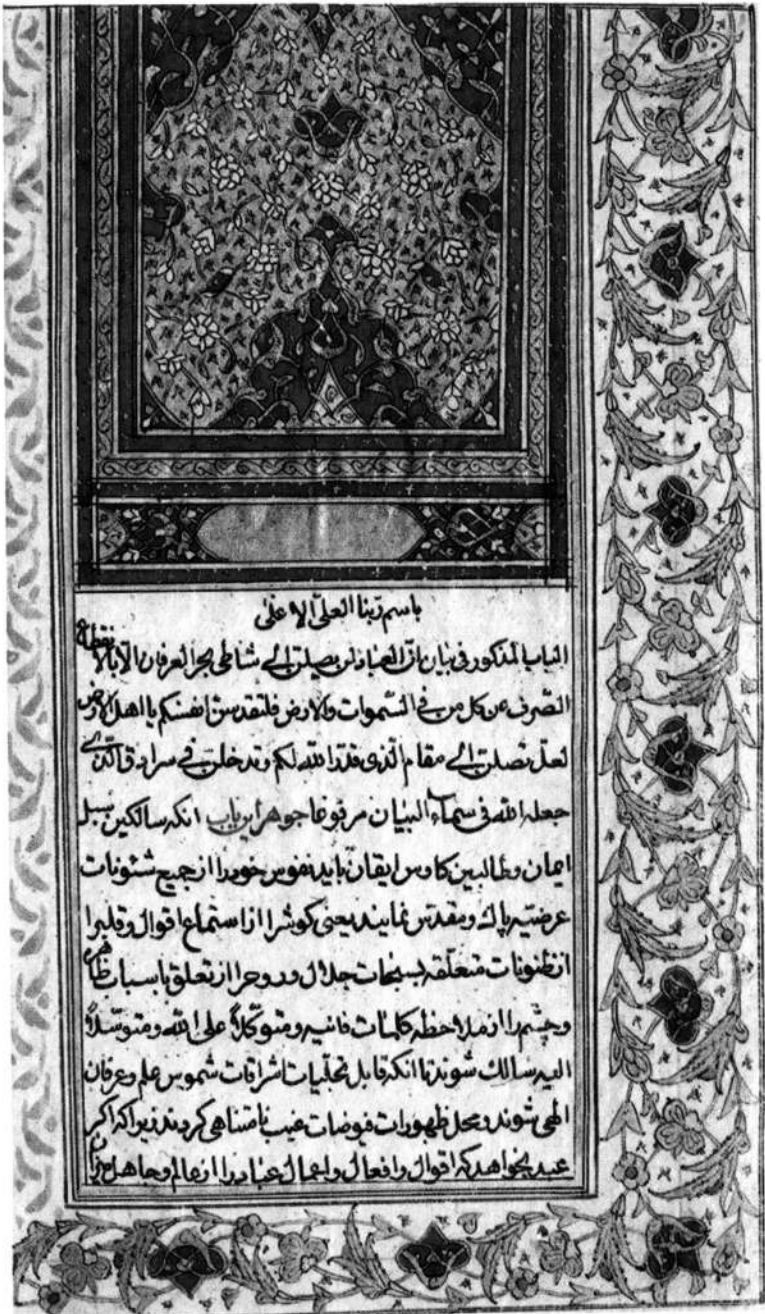 باسم ربنا العلی الاعلی
الباب المذکور فی بیان ان العباد لن یصلن الی شاطی بحر العرفان الا بالانقطاع
الصرف عن کل من فی السموات والارض فلتقدسن انفسکم یا اهل الارض
لعل تصلن الی مقام الذی قدر الله لکم وتدخلن فی سرادق الذی
جعله الله فی سماء البیان مرفوعا جوهر این باب انکه سالکین سبیل
ایمان وطالبین کاوس ایقان باید نفوس خود را از جمیع شئونات
عرضیه پاک ومقدس نمایند یعنی کوش را از استماع اقوال وقلب را
از ظنونات متعلقه بسبحات جلال وروح را از تعلق باسباب ظاهره
وچشم را از ملاحظه کلمات فانیه ومتوکلاً علی الله ومتوسلاً
الیه سالک شوند تا انکه قابل تجلیات اشراقات شموس علم وعرفان
الهی شوند ومحل ظهورات فیوضات غیب نامتناهی کردند زیرا که اکر
عبد بخواهد که اقوال وافعال واعمال عباد را از عالم وجاهل میزان